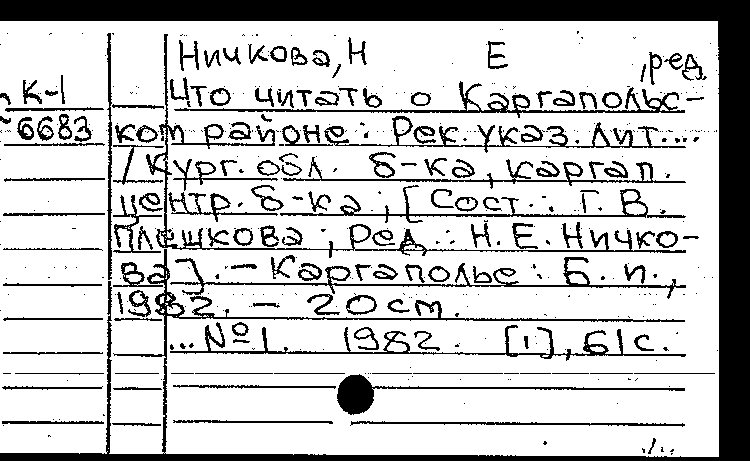 Ничкова, Н Е , ред.
К-1 Что читать о Каргапольс-
6683 ком районе: Рек. указ. лит....
/ Кург. обл. б-ка, каргап.
центр. б-ка; [Сост.: Г. В.
Плешкова; Ред.: Н. Е. Ничко-
ва]. – Каргаполье: Б. и.,
1982. – 20 см.
...№ 1. 1982. [1], 61 с.